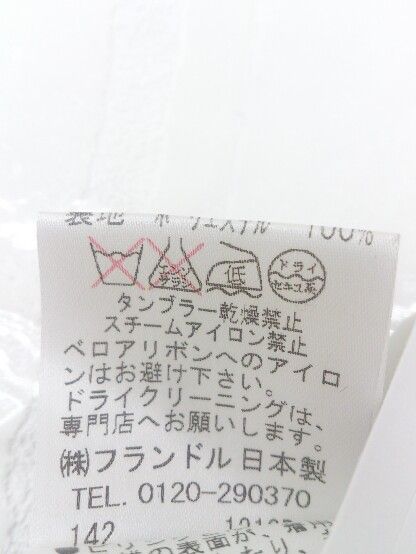 ポリエステル 100%
低
ドライ
セキユ系
タンブラー乾燥禁止
スチームアイロン禁止
ベロアリボンへのアイロ
ンはお避け下さい。
ドライクリーニングは、
専門店へお願いします。
㈱フランドル 日本製
TEL. 0120-290370
142
の表面が、